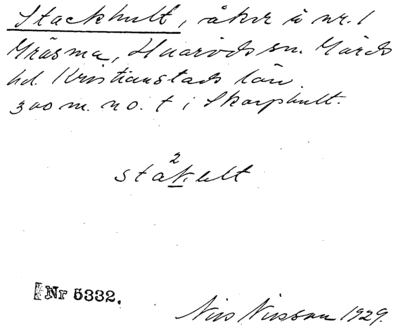 Stackhult, åker å nr. 1
Gräsma, Huaröds sn. Gärds
hd. Kristianstads län
300 m. no. t i Skarphult.
2
stakult
Nr 5332.
Nils Nilsson 1929.